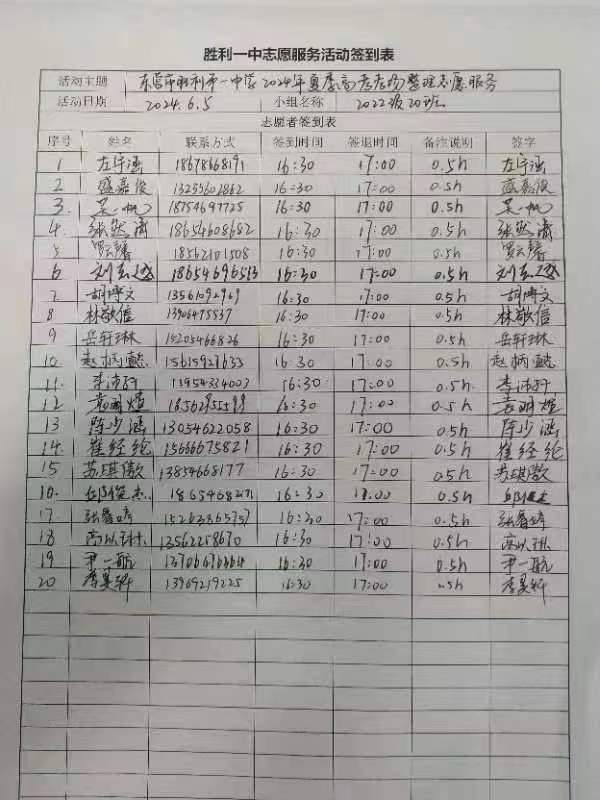 胜利一中志愿服务活动签到表
活动主题 东营市胜利第一中学2024年夏季高考考场整理志愿服务
活动日期 2024.6.5 小组名称 2022级20班
志愿者签到表
序号 姓名 联系方式 签到时间 签退时间 备注说明 签字
1 左宇涵 18678668191 16:30 17:00 0.5h 左宇涵
2 盛嘉俊 13255601862 16:30 17:00 0.5h 盛嘉俊
3. 吴一帆 18754697725 16:30 17:00 0.5h 吴一帆
4. 张 18654608682 16:30 17:00 0.5h 张
5 罗云馨 18562101508 16:30 17:00 0.5h 罗云馨
6 刘 18654696513 16:30 17:00 0.5h 刘
7 胡博文 13561092969 16:30 17:00 0.5h 胡博文
8 林敬信 16:30 17:00 0.5h 林敬信
9 岳轩琳 15205466826 16:30 17:00 0.5h 岳轩琳
10. 赵炳懿 16:30 17:00 0.5h 赵炳懿
11. 李沛 13954334003 16:30 17:00 0.5h. 李沛
12 袁明煜 16:30 17:00 0.5h 袁明煜
13 陈少涵 13054622058 16:30 17:00 0.5h 陈少涵
14. 崔经纶 15666675821 16:30 17:00 0.5h 崔经纶
15 苏琪澈 13854668177 16:30 17:00 0.5h 苏琪澈
16. 邱俊杰 16:30 17:00 0.5h 邱俊杰
17. 张睿婷 16:30 17:00 0.5h 张睿婷
18 高以琳 13562258670 16:30 17:00 0.5h 高以琳
19 尹一航 16:30 17:00 0.5h 尹一航
20 李昊轩 13969219225 16:30 17:00 0.5h 李昊轩